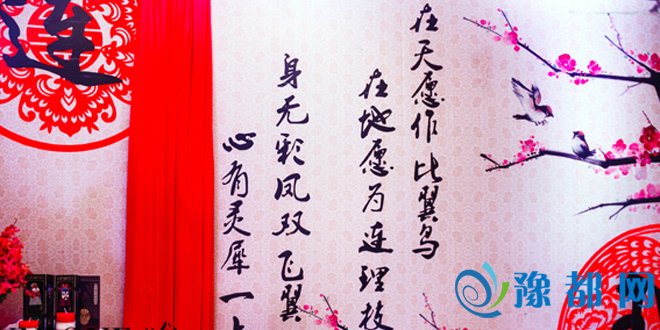 在天愿作比翼鸟
在地愿为连理枝
身无彩凤双飞翼
心有灵犀一
連
豫都网